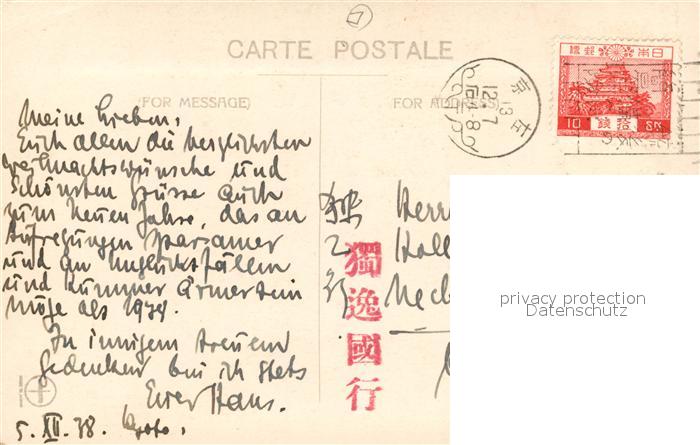 CARTE POSTALE
(FOR MESSAGE)
Meine Lieben,
Euch allen die herzlichsten
Weihnachtswünsche und
schönsten Grüsse auch
zum neuen Jahre, das an
Aufregungen sparsamer
und an Unglücksfällen
und Kummer ärmer sein
möge als 1938.
In innigem treuem
Gedenken bin ich stets
Euer Hans.
5. XII. 38. Kyoto.
(FOR ADDRESS)
13
12 7
日本郵便
拾銭
10
SN.
Herr
獨逸國行
privacy protection
Datenschutz